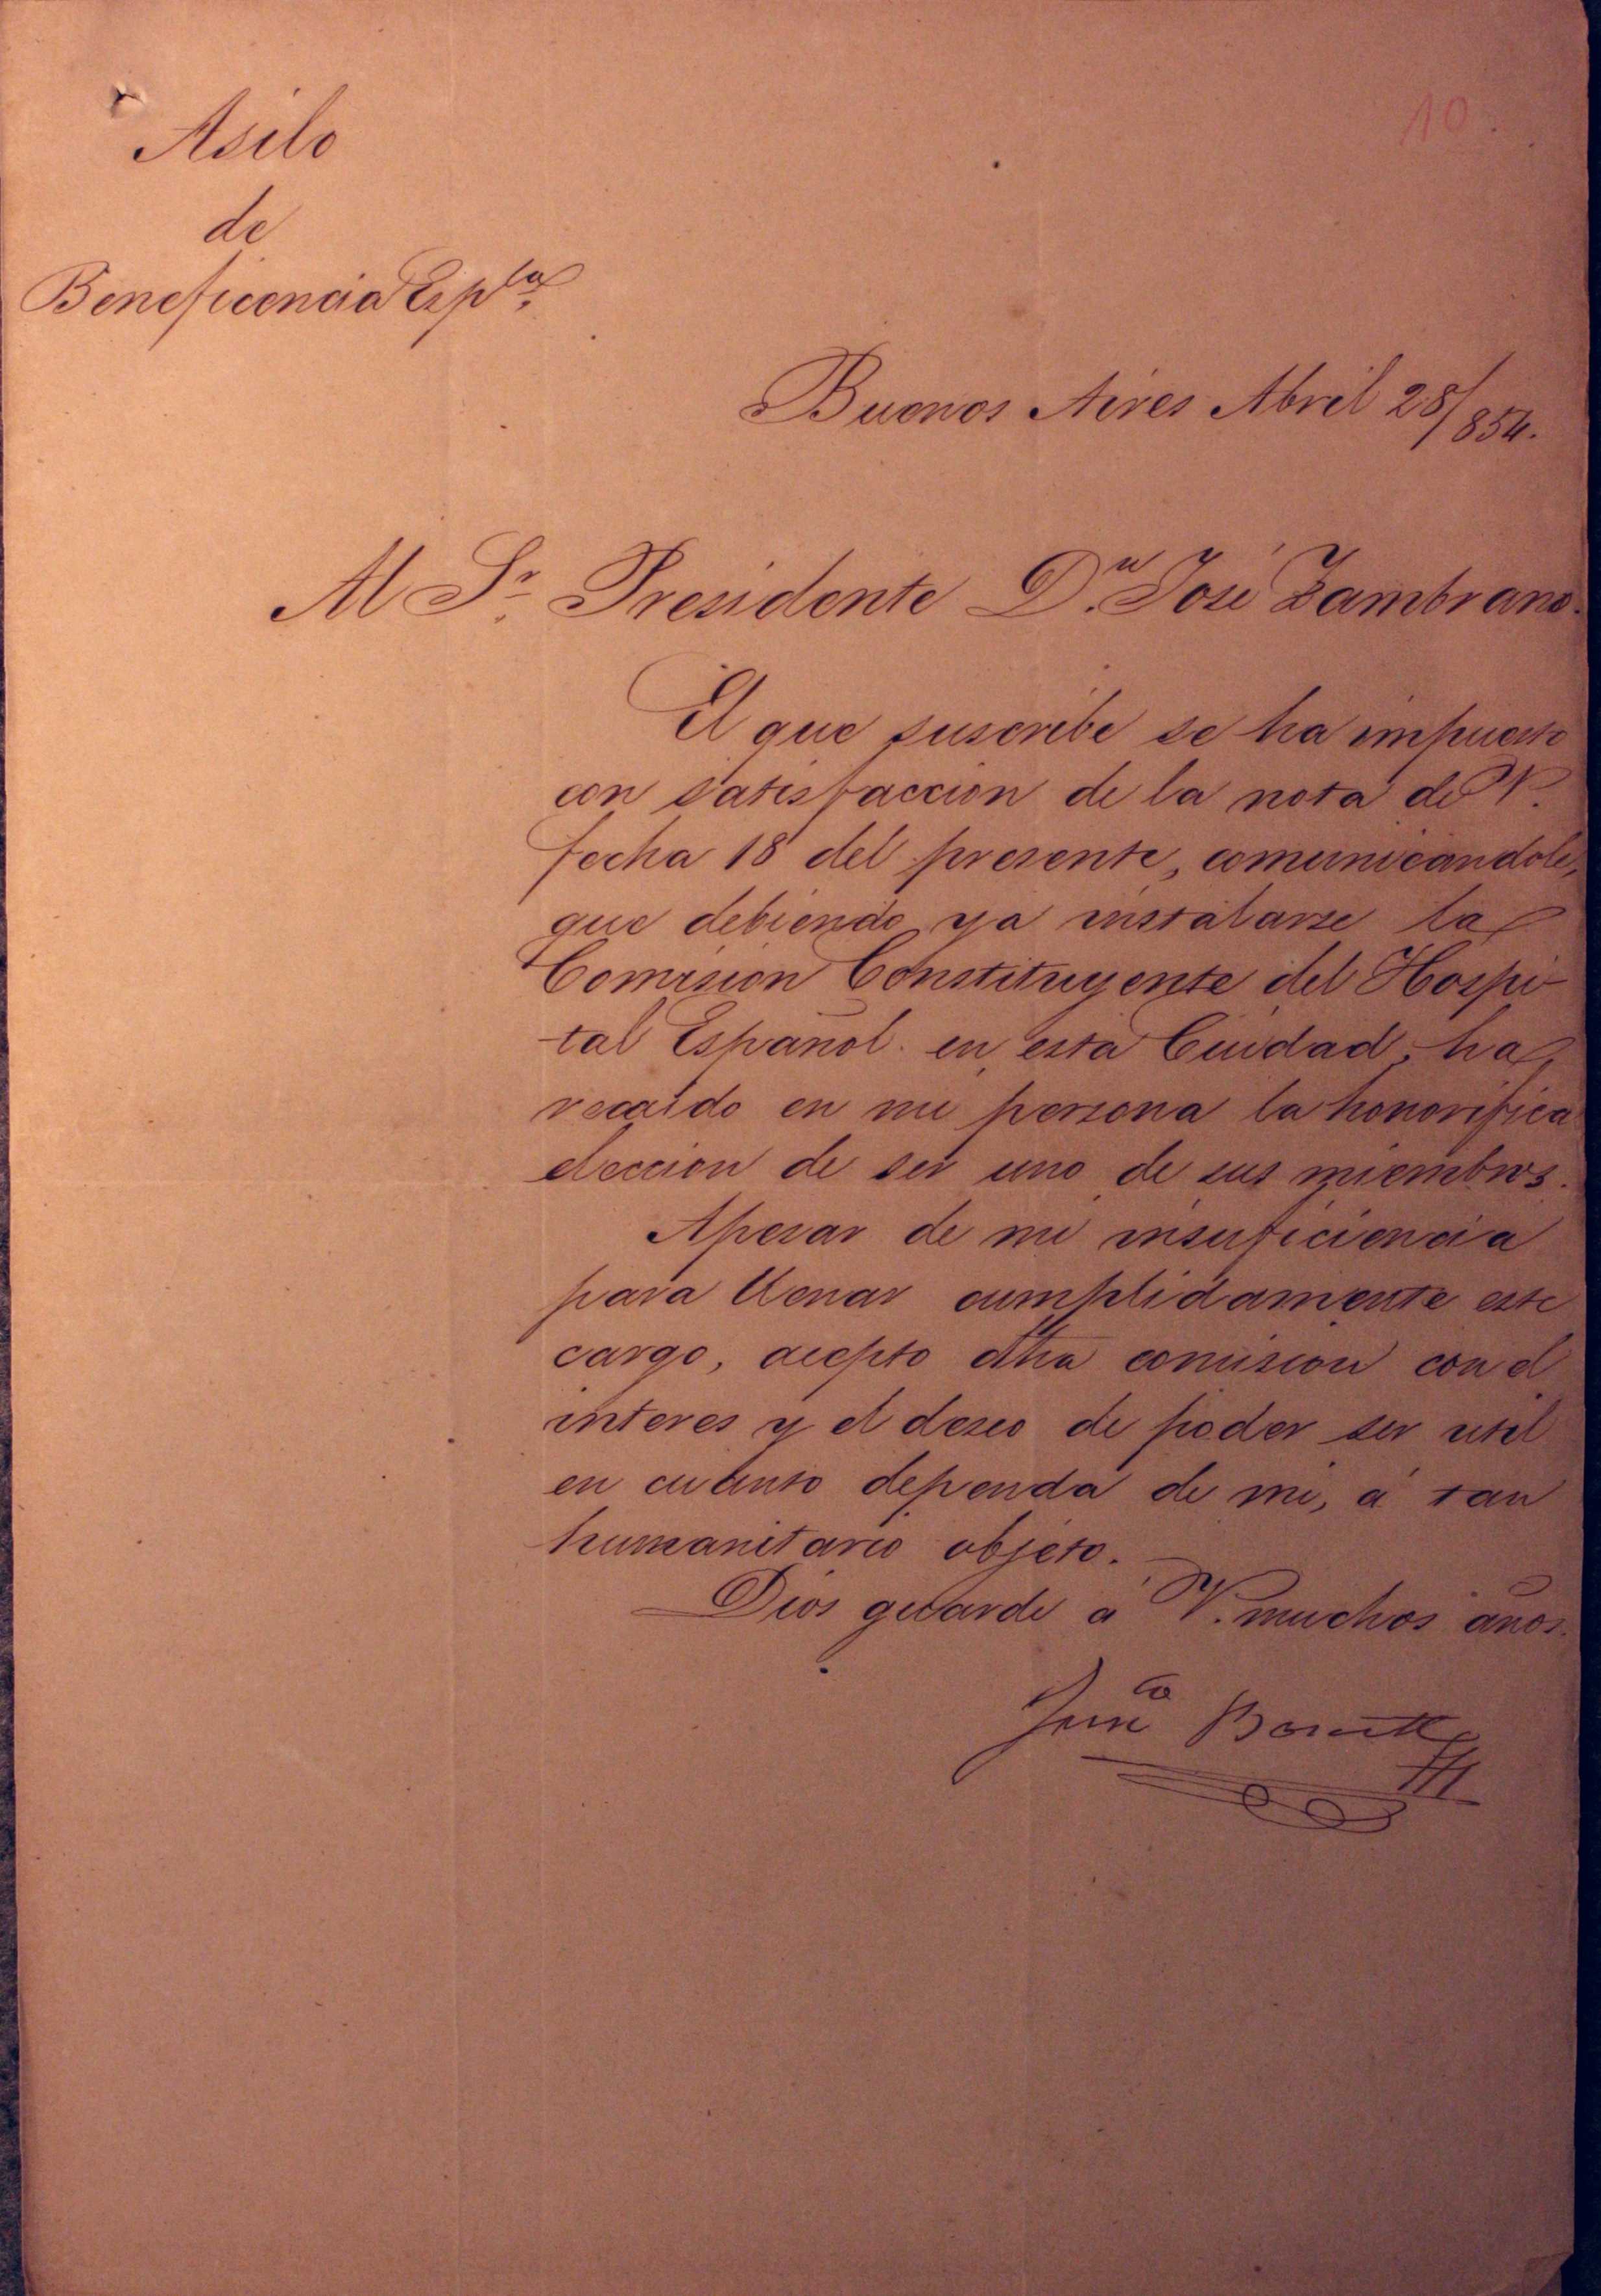 10.
Asilo
de
Beneficencia Espla.
Buenos Aires Abril 28/854.
Al Sr. Presidente Dn. José Zambrano.
El que suscribe se ha impuesto
con satisfaccion de la nota de V.
fecha 18 del presente, comunicandole,
que debiendo ya instalarse la
Comision Constituyente del Hospi-
tal Español en esta Ciudad, ha
recaido en mi persona la honorifica
eleccion de ser uno de sus miembros.
Apesar de mi insuficiencia
para llenar cumplidamente este
cargo, acepto dha comision con el
interes y el deseo de poder ser util
en cuanto dependa de mi, á tan
humanitario objeto.
Dios guarde á V. muchos años.